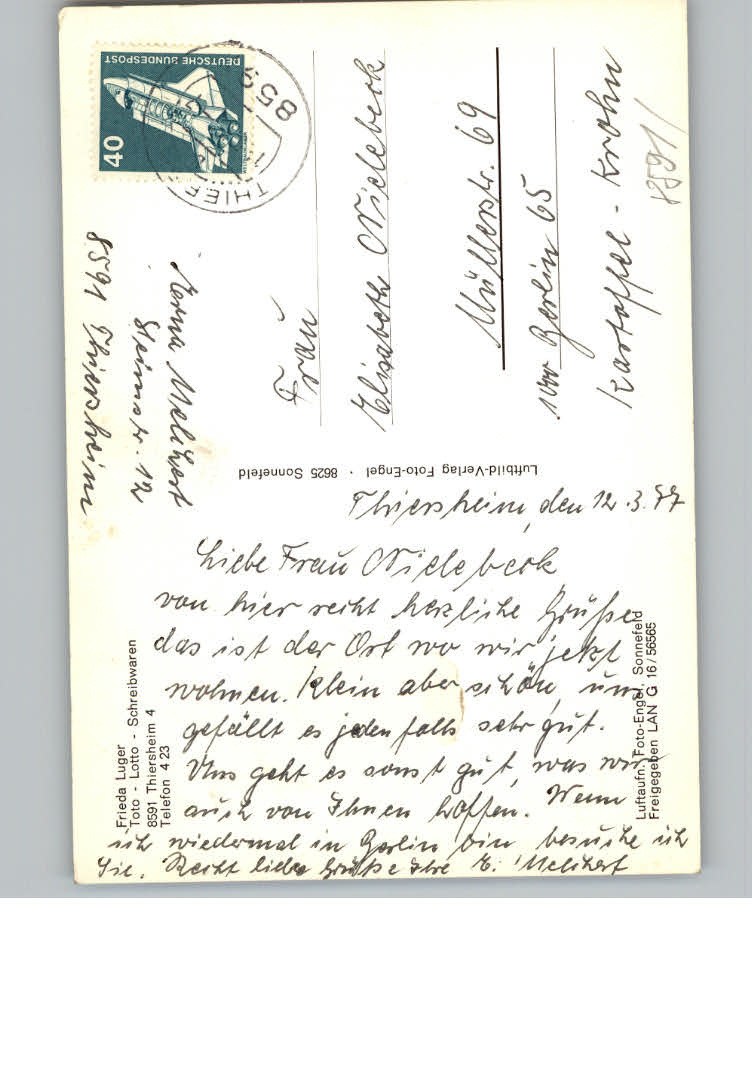 Thiersheim, den 12.3.77
Liebe Frau Nielebock
von hier recht herzliche Grüße
das ist der Ort wo wir jetzt
wohnen. Klein aber schön, uns
gefällt es jeden falls sehr gut.
Uns geht es sonst gut, was wir
auch von Ihnen hoffen. Wenn
ich wiedermal in Berlin bin besuche ich
Sie. Recht liebe Grüße Ihre E. Melchert
Frieda Luger
Toto - Lotto - Schreibwaren
8591 Thiersheim 4
Telefon 4 23
Luftaufn. Foto-Engel, Sonnefeld
Freigegeben LAN G 16/56565
Luftbild-Verlag Foto-Engel · 8625 Sonnefeld
Melchert
Steinstr. 12
8591 Thiersheim
DEUTSCHE BUNDESPOST
40
859
THIE
Frau
Elisabeth Nielebock
Müllerstr. 69
1000 Berlin 65
Kartoffel - Krohn
8591/